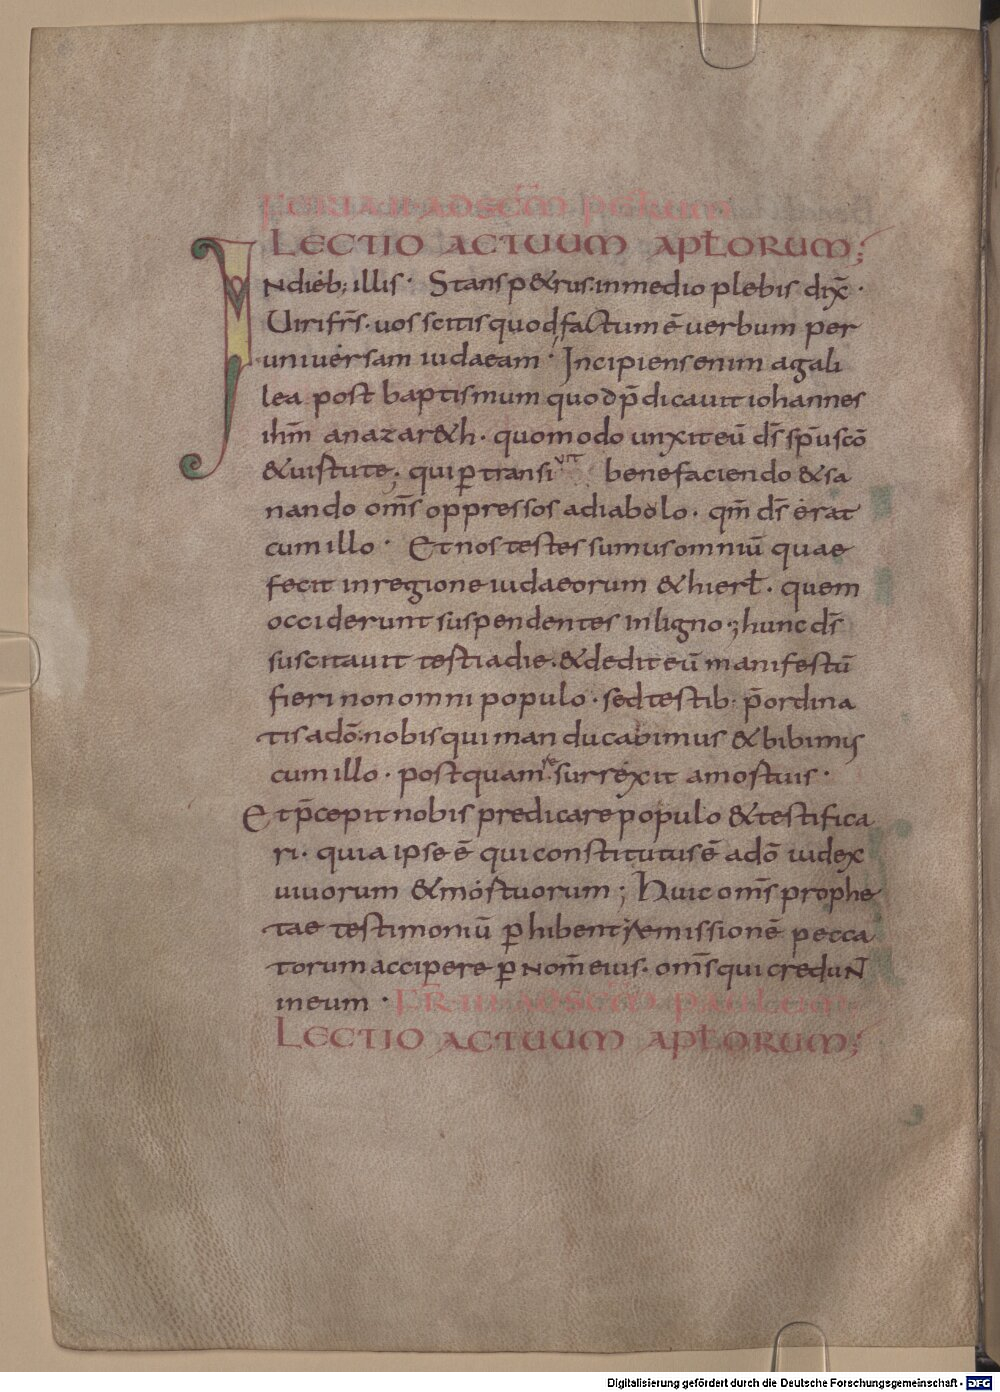 FERIA II AD SCM PETRUM
LECTIO ACTUUM APŁORUM;
INdieb; illis · Stans p&rus · in medio plebis dix̄ ·
Uiri fr̄s · uos scitis quod factum ē uerbum per
uniuersam iudaeam · Incipiens enim a gali
lea post baptismum quod p̄dicauit iohannes
ih̄m a nazar&h · quomodo unxit eū ds̄ sp̄u scō
& uirtute; qui ꝑtransiuit benefaciendo & sa
nando om̄s oppressos a diabolo · qm̄ ds̄ erat
cum illo · Et nos testes sumus omniū quae
fecit in regione iudaeorum & hierł · quem
occiderunt suspendentes in ligno ·; hunc ds̄
suscitauit testia die · & dedit eū manifestū
fieri non omni populo · sed testib · p̄ordina
tis a dō · nobis qui manducabimus & bibimus
cum illo · postquam re surrexit a mortuis ·
Et p̄cepit nobis predicare populo & testifica
ri · quia ipse ē qui constitutus ē a dō iudex
uiuorum & mortuorum; Huic om̄s prophe
tae testimoniū ꝑhibent remissionē pecca
torum accipere ꝑ nom̄ eius · om̄s qui creduN̄
in eum · FR̄ III AD SCM PAULUM
LECTIO ACTUUM APŁORUM;
Digitalisierung gefördert durch die Deutsche Forschungsgemeinschaft - DFG